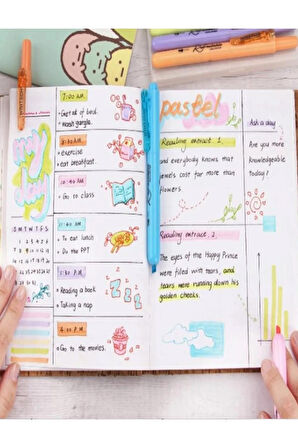 my
day
S M T W T F S
7:00 A.M.
Get out of bed.
Wash gargle.
exercise
eat breakfast.
10:40 A.M
Go to class
To eat lunch
Do the PPT
Reading a book
Taking a nap
Zzz
6:00 P.M.
Go to the movies.
pastel
Reading extract 1.
and everybody knows that
jewels cost far more than
flowers
Reading extract 2.
The eyes of the Happy Prince
were filled with tears, and
tears were running down his
golden cheeks.
Ask a day
Are you more
knowledgeable
today?